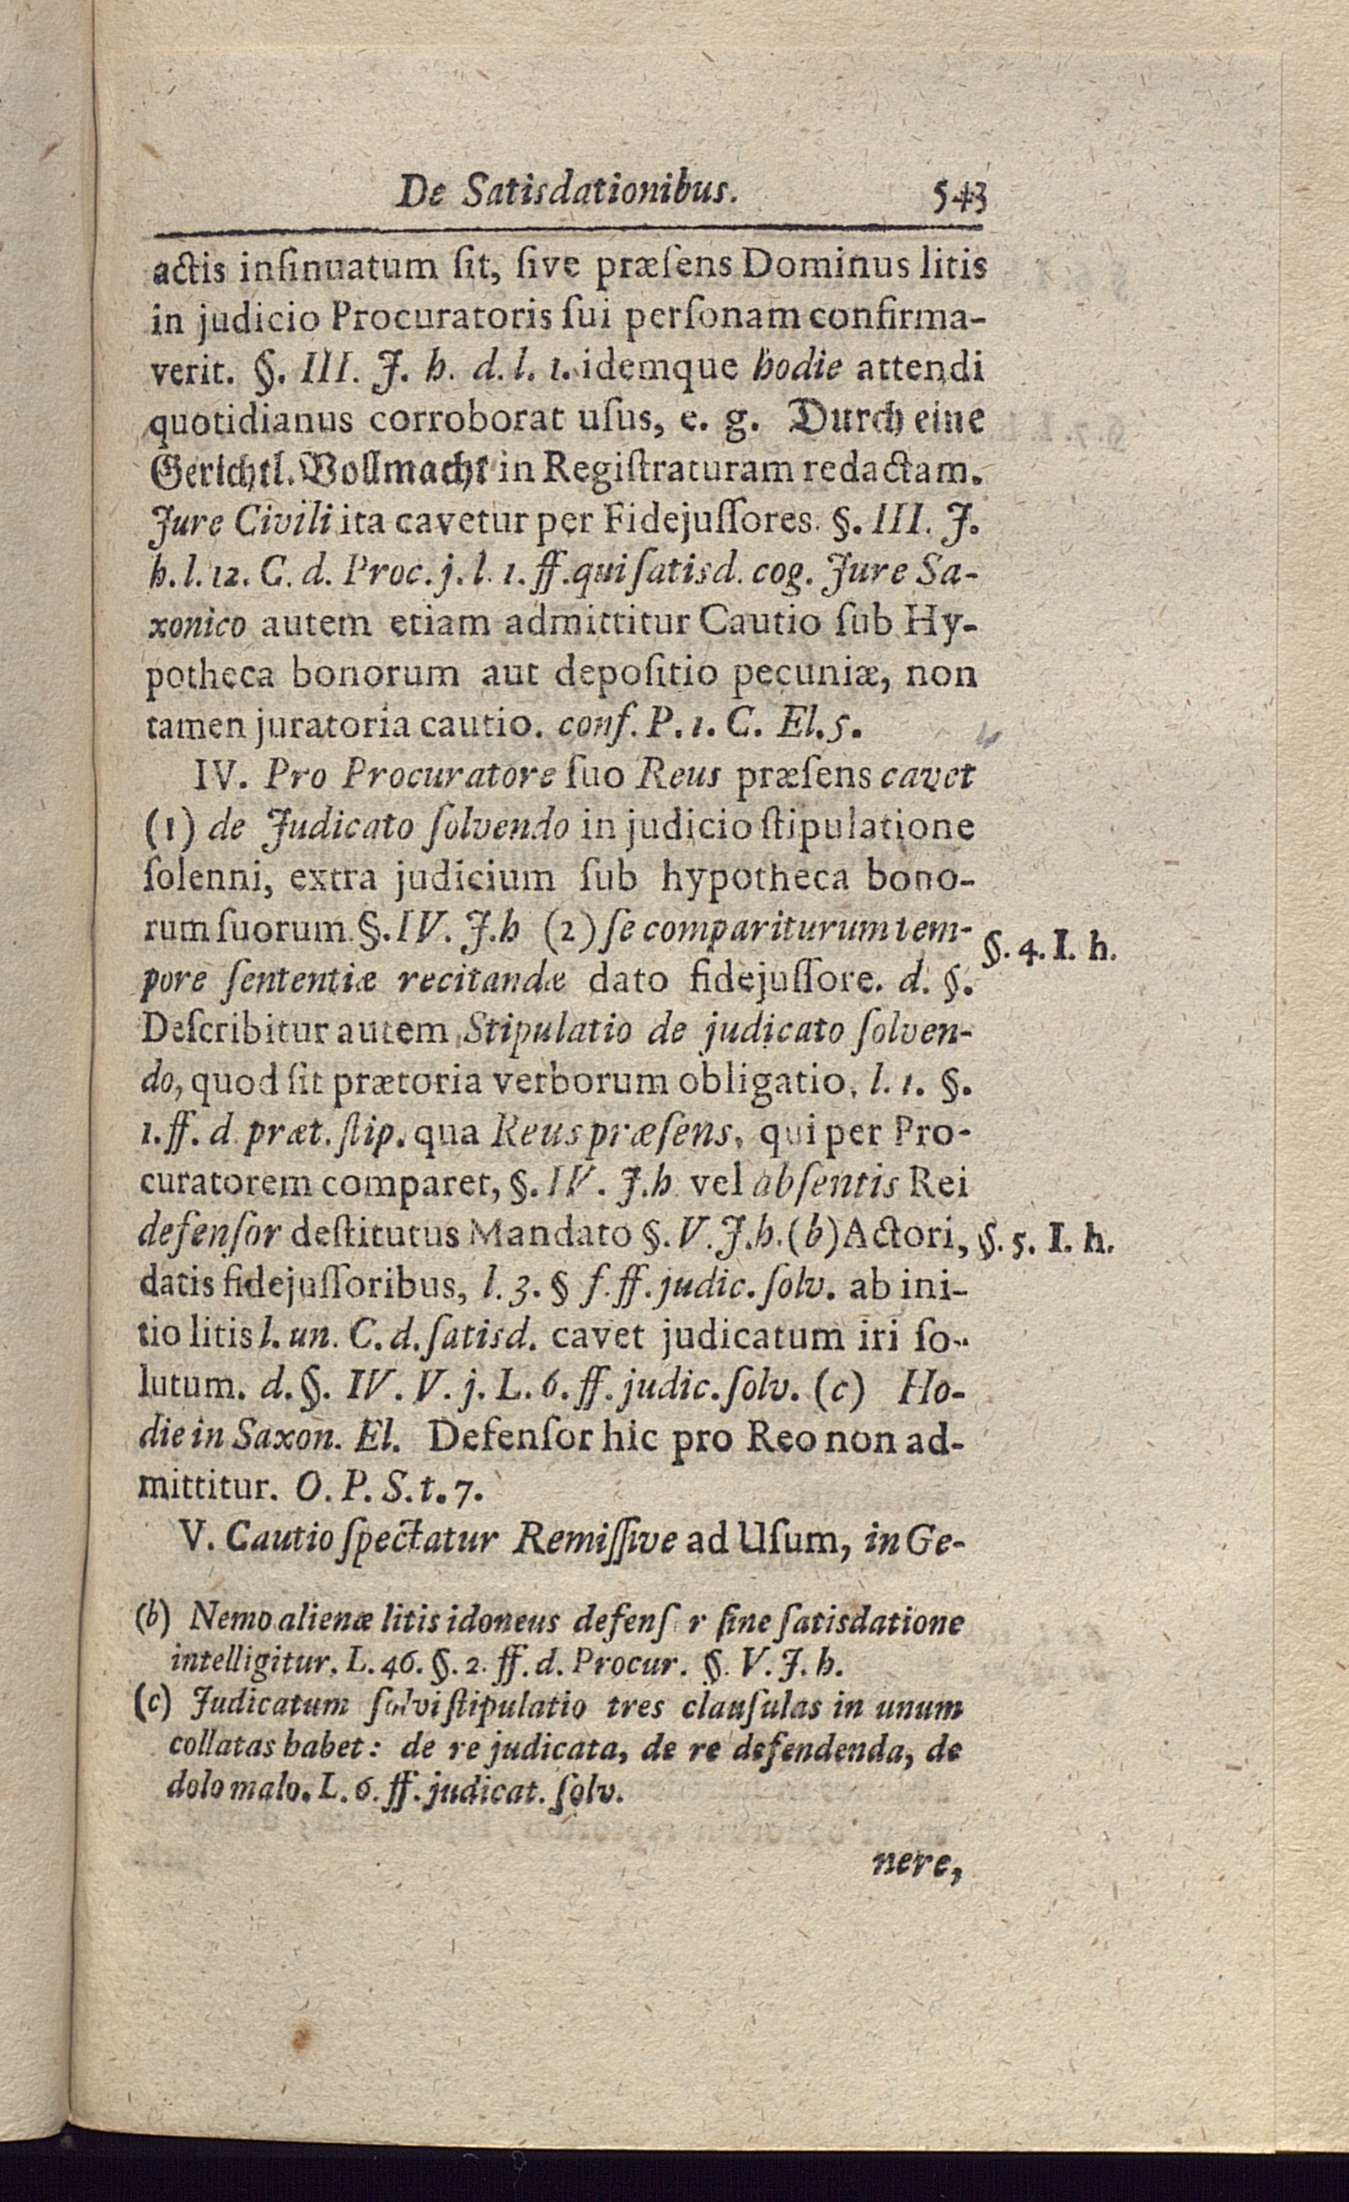 De Satisdationibus. 543
actis inſinuatum ſit, ſive præſens Dominus litis
in judicio Procuratoris ſui perſonam confirma-
verit. §. III. J. h. d. l. 1. idemque hodie attendi
quotidianus corroborat uſus, e. g. Durch eine
Gerichtl. Vollmacht in Regiſtraturam redactam.
Jure Civili ita cavetur per Fidejuſſores. §. III. J.
h. l. 12. C. d. Proc. j. l. 1. ff. qui ſatisd. cog. Jure Sa-
xonico autem etiam admittitur Cautio ſub Hy-
potheca bonorum aut depoſitio pecuniæ, non
tamen juratoria cautio. conf. P. 1. C. El. 5.
IV. Pro Procuratore ſuo Reus præſens cavet
(1) de Judicato ſolvendo in judicio ſtipulatione
ſolenni, extra judicium ſub hypotheca bono-
rum ſuorum. §. IV. J. h (2) ſe compariturum tem-
§. 4. I. h.
pore ſententiæ recitandæ dato fidejuſſore. d. §.
Deſcribitur autem Stipulatio de judicato ſolven-
do, quod ſit prætoria verborum obligatio. l. 1. §.
1. ff. d. præt. ſtip. qua Reus præſens, qui per Pro-
curatorem comparet, §. IV. J. h vel abſentis Rei
defenſor deſtitutus Mandato §. V. J. h. (b) Actori,
§. 5. I. h.
datis fidejuſſoribus, l. 3. § f. ff. judic. ſolv. ab ini-
tio litis l. un. C. d. ſatisd. cavet judicatum iri ſo-
lutum. d. §. IV. V. j. L. 6. ff. judic. ſolv. (c) Ho-
die in Saxon. El. Defenſor hic pro Reo non ad-
mittitur. O. P. S. t. 7.
V. Cautio ſpectatur Remiſſive ad Uſum, in Ge-
(b) Nemo alienæ litis idoneus defenſ r ſine ſatisdatione
intelligitur. L. 46. §. 2. ff. d. Procur. §. V. J. h.
(c) Judicatum ſolvi ſtipulatio tres clauſulas in unum
collatas habet: de re judicata, de re defendenda, de
dolo malo. L. 6. ff. judicat. ſolv.
nere,